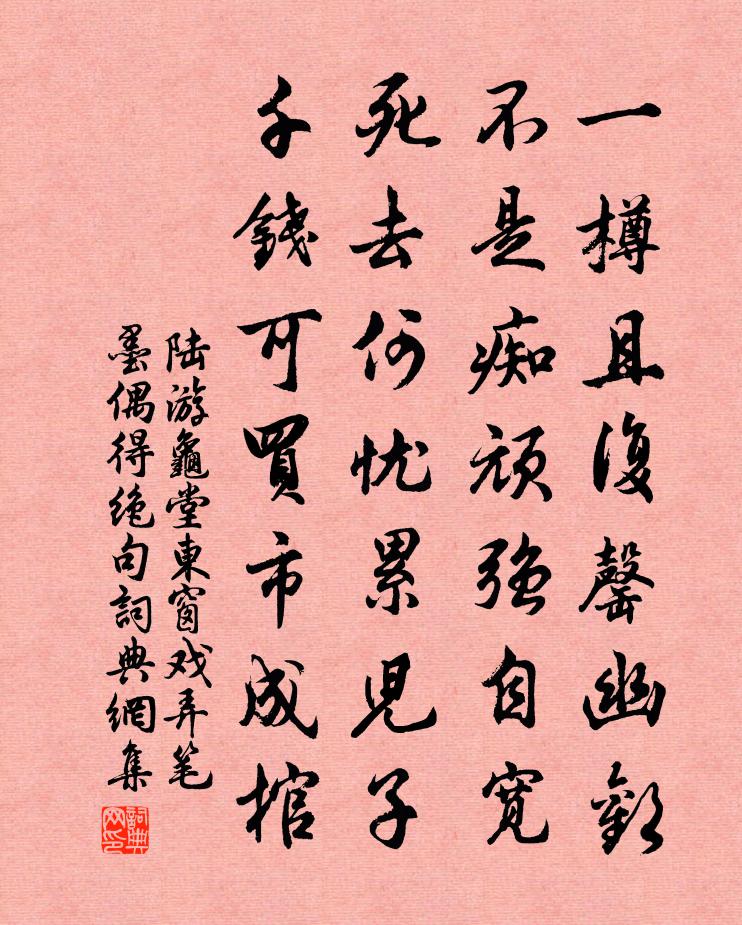 一樽且復罄幽歡
不是痴頑強自寬
死去何忧累児子
千錢可買市成棺
陆游龜堂東窗戏弄笔
墨偶得絶句詞典網集
詞典
网印